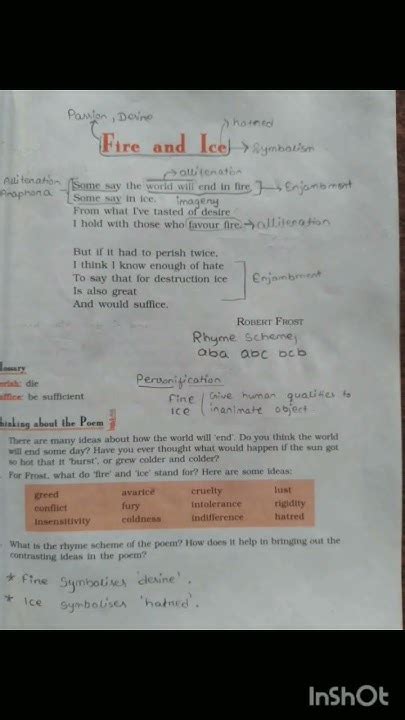 Passion, Desire
hatred
Fire and Ice → Symbolism
alliteration
Alliteration
Anaphora
Some say the world will end in fire, → Enjambment
Some say in ice. imagery
From what I've tasted of desire
I hold with those who favour fire. → alliteration
But if it had to perish twice,
I think I know enough of hate
To say that for destruction ice
Enjambment
Is also great
And would suffice.
ROBERT FROST
Rhyme Scheme;
aba abc bcb
lossary
erish: die
uffice: be sufficient
Personification
Fire
Ice
Give human qualities to
inanimate object
hinking about the Poem
There are many ideas about how the world will 'end'. Do you think the world
will end some day? Have you ever thought what would happen if the sun got
so hot that it 'burst', or grew colder and colder?
For Frost, what do 'fire' and 'ice' stand for? Here are some ideas:
greed avarice cruelty lust
conflict fury intolerance rigidity
insensitivity coldness indifference hatred
What is the rhyme scheme of the poem? How does it help in bringing out the
contrasting ideas in the poem?
* Fire Symbolises 'desire'.
* Ice symbolises 'hatred'.
InShOt